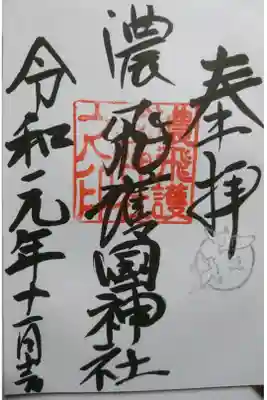 奉拝
濃飛護国神社
濃飛護
令和元年十一月吉